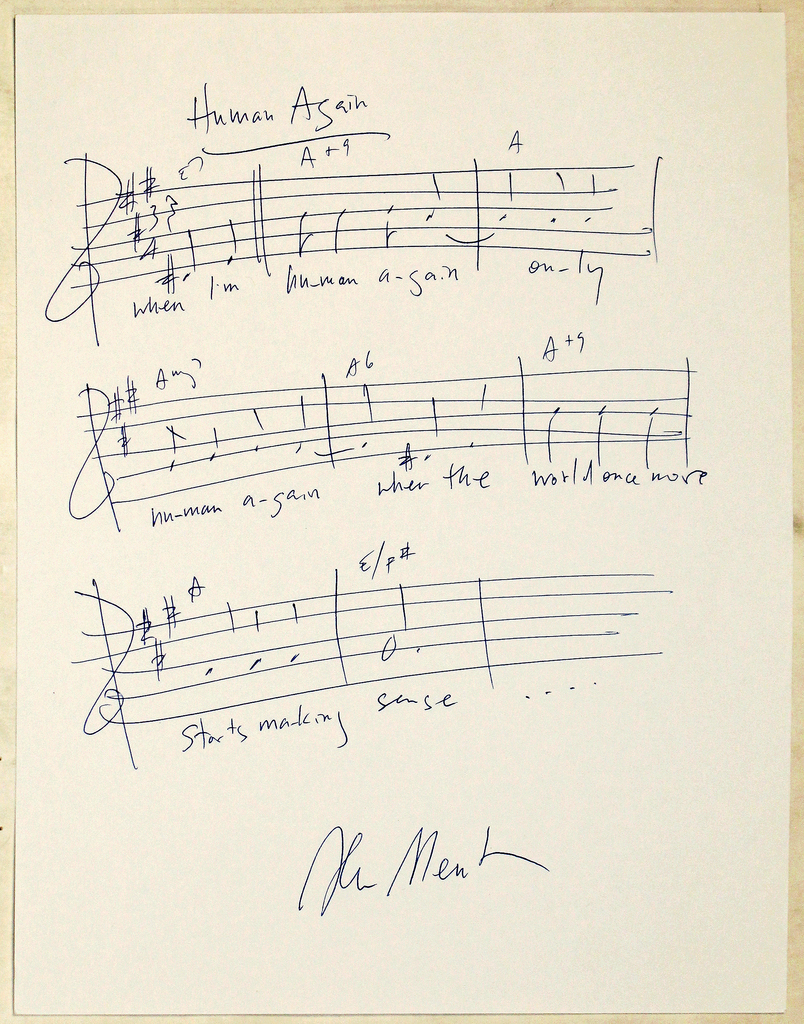 Human Again
E7 A+9 A
when I'm hu-man a-gain on-ly
A6 A+9
hu-man a-gain when the world once more
A E/F#
Starts making sense ....